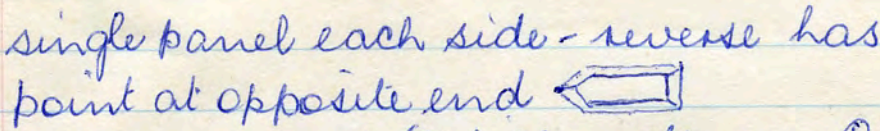 single panel each side - reverse has
point at opposite end